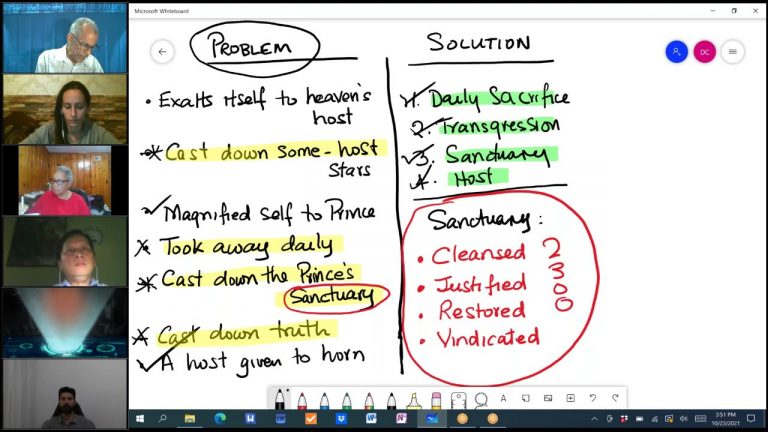 Microsoft Whiteboard
PROBLEM
• Exalts itself to heaven's
host
Cast down some - host
stars
Magnified self to Prince
Took away daily
Cast down the Prince's
Sanctuary
Cast down truth
A host given to horn
SOLUTION
1. Daily Sacrifice
2. Transgression
3. Sanctuary
4. Host
Sanctuary:
• Cleansed 2
• Justified 3
• Restored 0
• Vindicated 0
DC
3:51 PM
10/23/2021